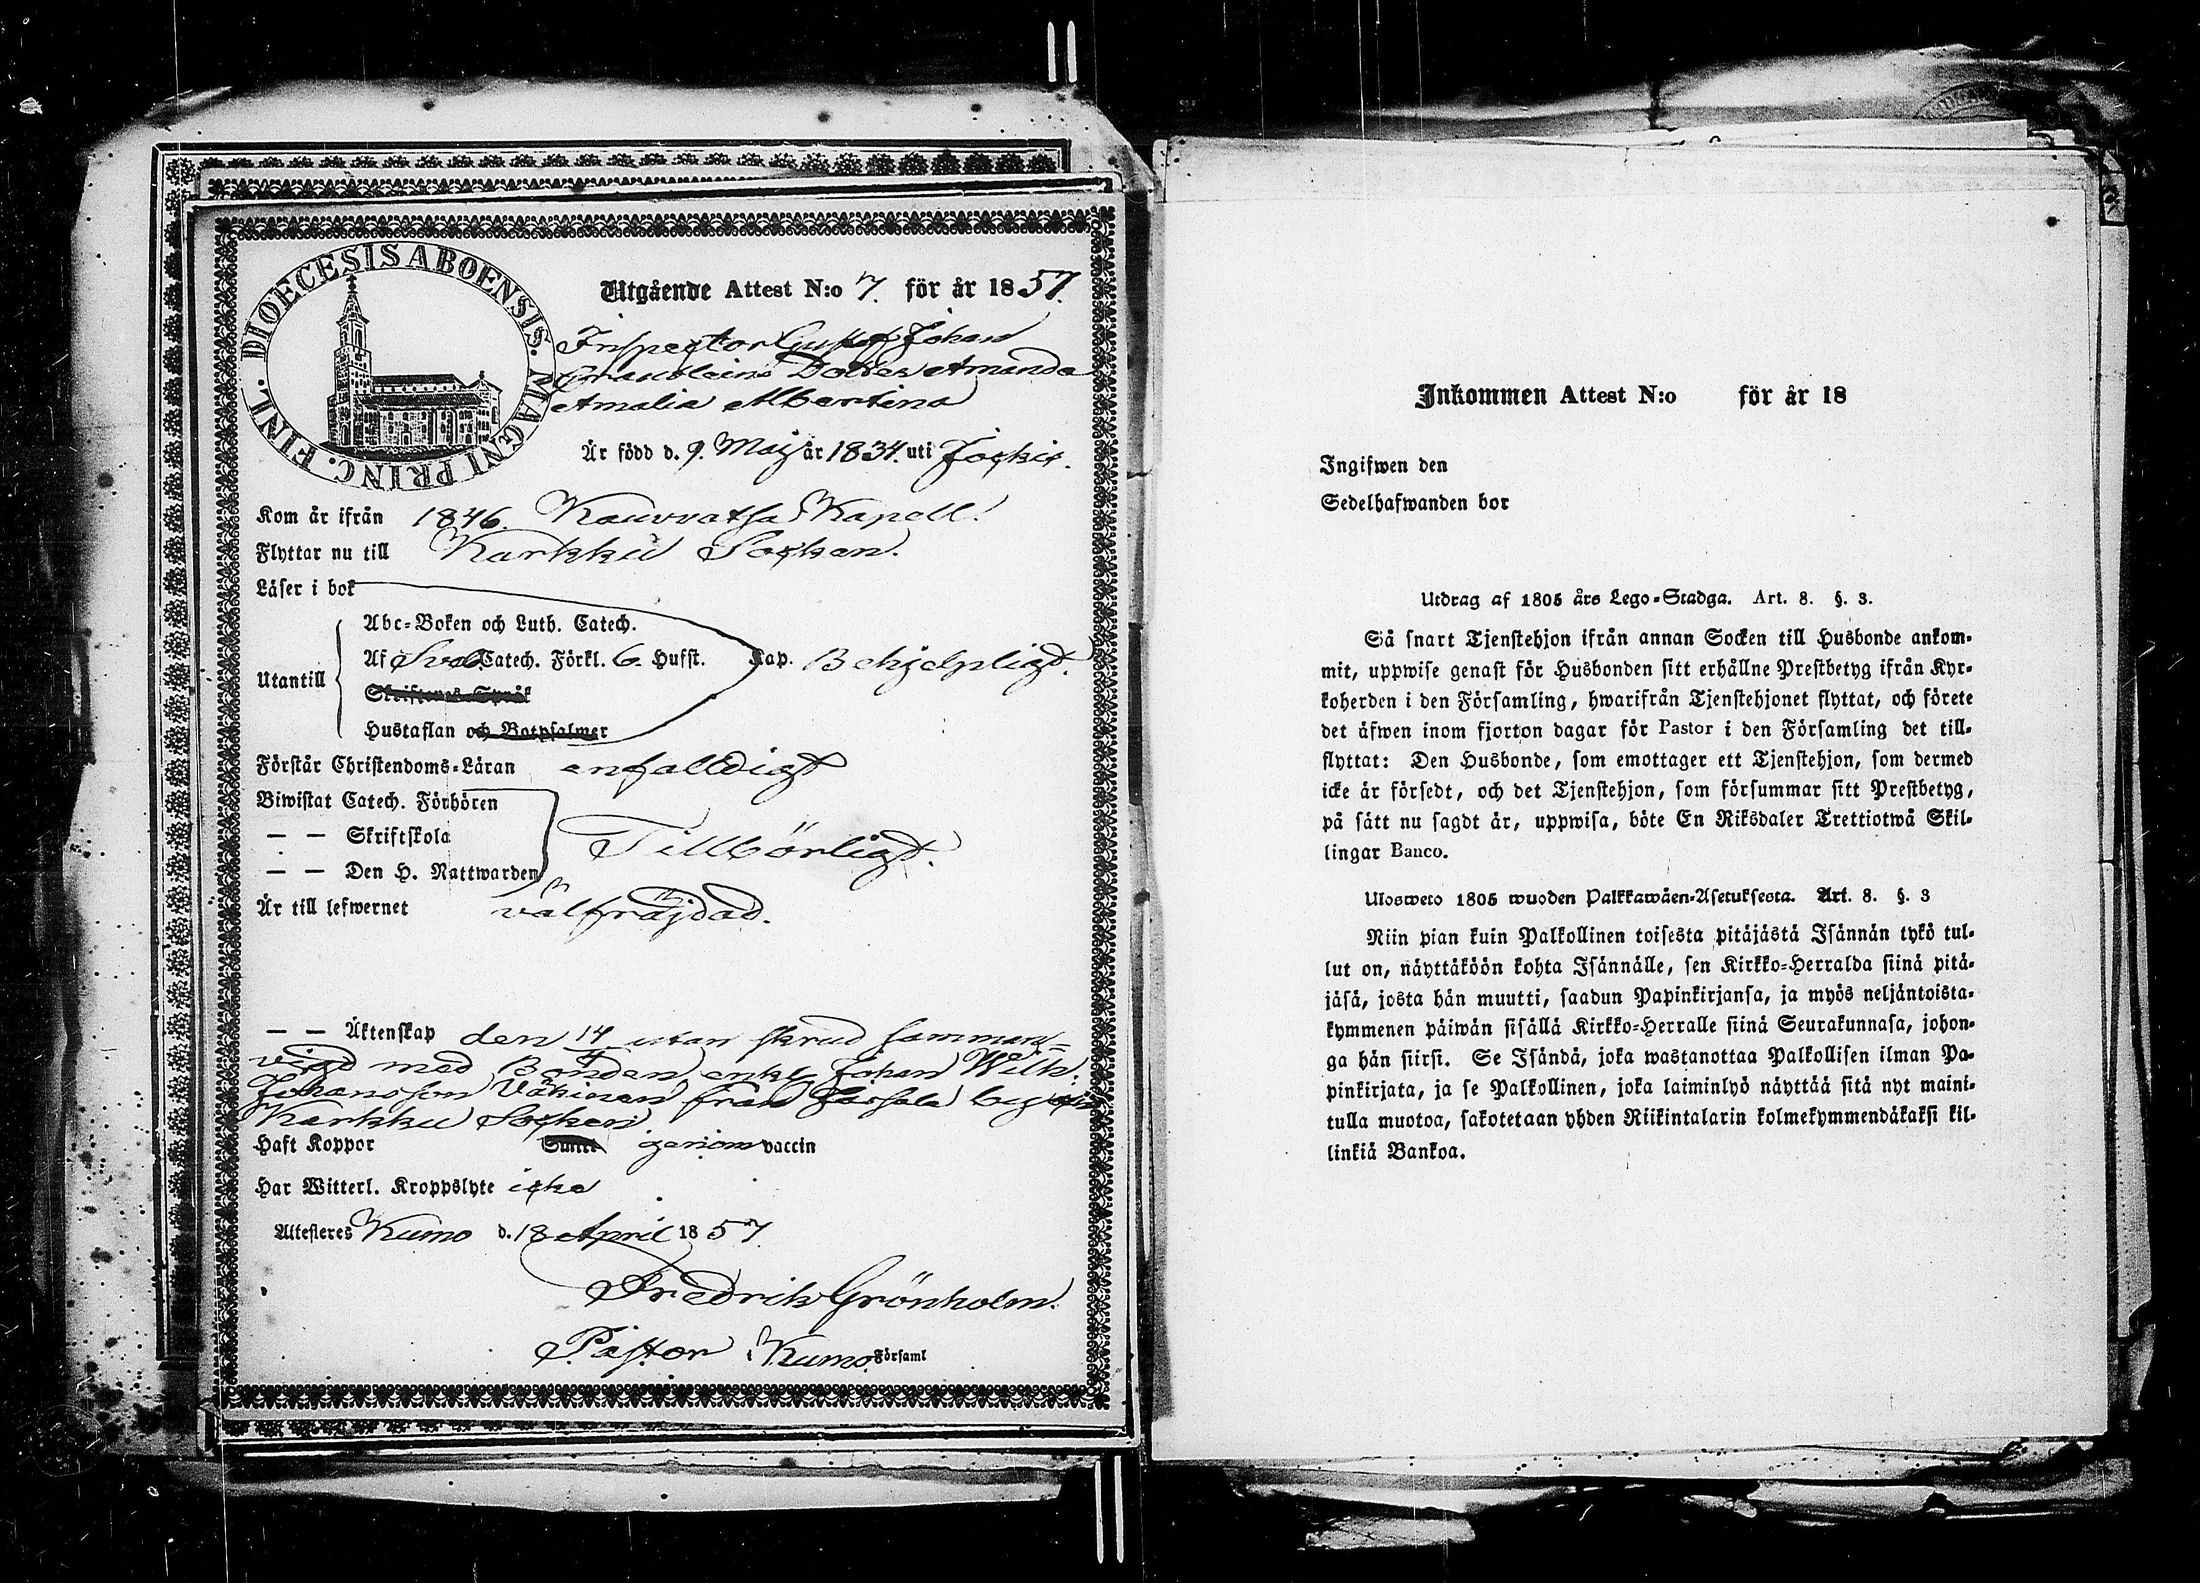 DIOECESIS ABOENSIS. MAGNI PRINC. FINL.
Utgående Attest N:o 7. för år 1857.
Inspector Gustaf Johan
Dotter Amanda
Amalia Albertina
Är född d. 9. Maj år 1834. uti Jockis.
Kom år ifrån 1846. Kauvatsa Kapell.
Flyttar nu till Karkku Socken.
Läser i bok
Abc-Boken och Luth. Catech.
Utantill
Af Sveb. Catech. Förkl. 6. Hufst. Kap. Behjelpligt.
Skriftenes Språk
Hustaflan och Botpsalmer
Förstår Christendoms-Läran enfalldigt
Biwistat Catech. Förhören
— — Skriftskola
Tillbörligt.
— — Den H. Nattwarden
Är till lefwernet välfräjdad.
— — Äktenskap den 14/4 utan skrud samman-
vigd med Bonden enkl. Johan Wilh.
Johansson Väkinen från Sarsala by
Karkku Socken
Haft Koppor Samt genom vaccin
Har Witterl. Kroppslyte icke
Attesteres Kumo d. 18 April 1857
Fredrik Grönholm.
Pastor i Kumo Församl
Inkommen Attest N:o för år 18
Ingifwen den
Sedelhafwanden bor
Utdrag af 1805 års Lego-Stadga. Art. 8. §. 3.
Så snart Tjenstehjon ifrån annan Socken till Husbonde ankom-
mit, uppwise genast för Husbonden sitt erhållne Prestbetyg ifrån Kyr-
koherden i den Församling, hwarifrån Tjenstehjonet flyttat, och förete
det äfwen inom fjorton dagar för Pastor i den Församling det till-
flyttat: Den Husbonde, som emottager ett Tjenstehjon, som dermed
icke är försedt, och det Tjenstehjon, som försummar sitt Prestbetyg,
på sätt nu sagdt är, uppwisa, böte En Riksdaler Trettiotwå Skil-
lingar Banco.
Ulosweto 1805 wuoden Palkkawäen-Asetuksesta. Art. 8. §. 3
Niin pian kuin Palkollinen toisesta pitäjästä Isännän tykö tul-
lut on, näyttäköön kohta Isännälle, sen Kirkko-Herralda siinä pitä-
jäsä, josta hän muutti, saadun Papinkirjansa, ja myös neljäntoista-
kymmenen päiwän sisällä Kirkko-Herralle siinä Seurakunnasa, johon-
ga hän siirsi. Se Isändä, joka wastanottaa Palkollisen ilman Pa-
pinkirjata, ja se Palkollinen, joka laiminlyö näyttää sitä nyt maini-
tulla muotoa, sakotetaan yhden Riikintalarin kolmekymmendäkaksi kil-
linkiä Bankoa.